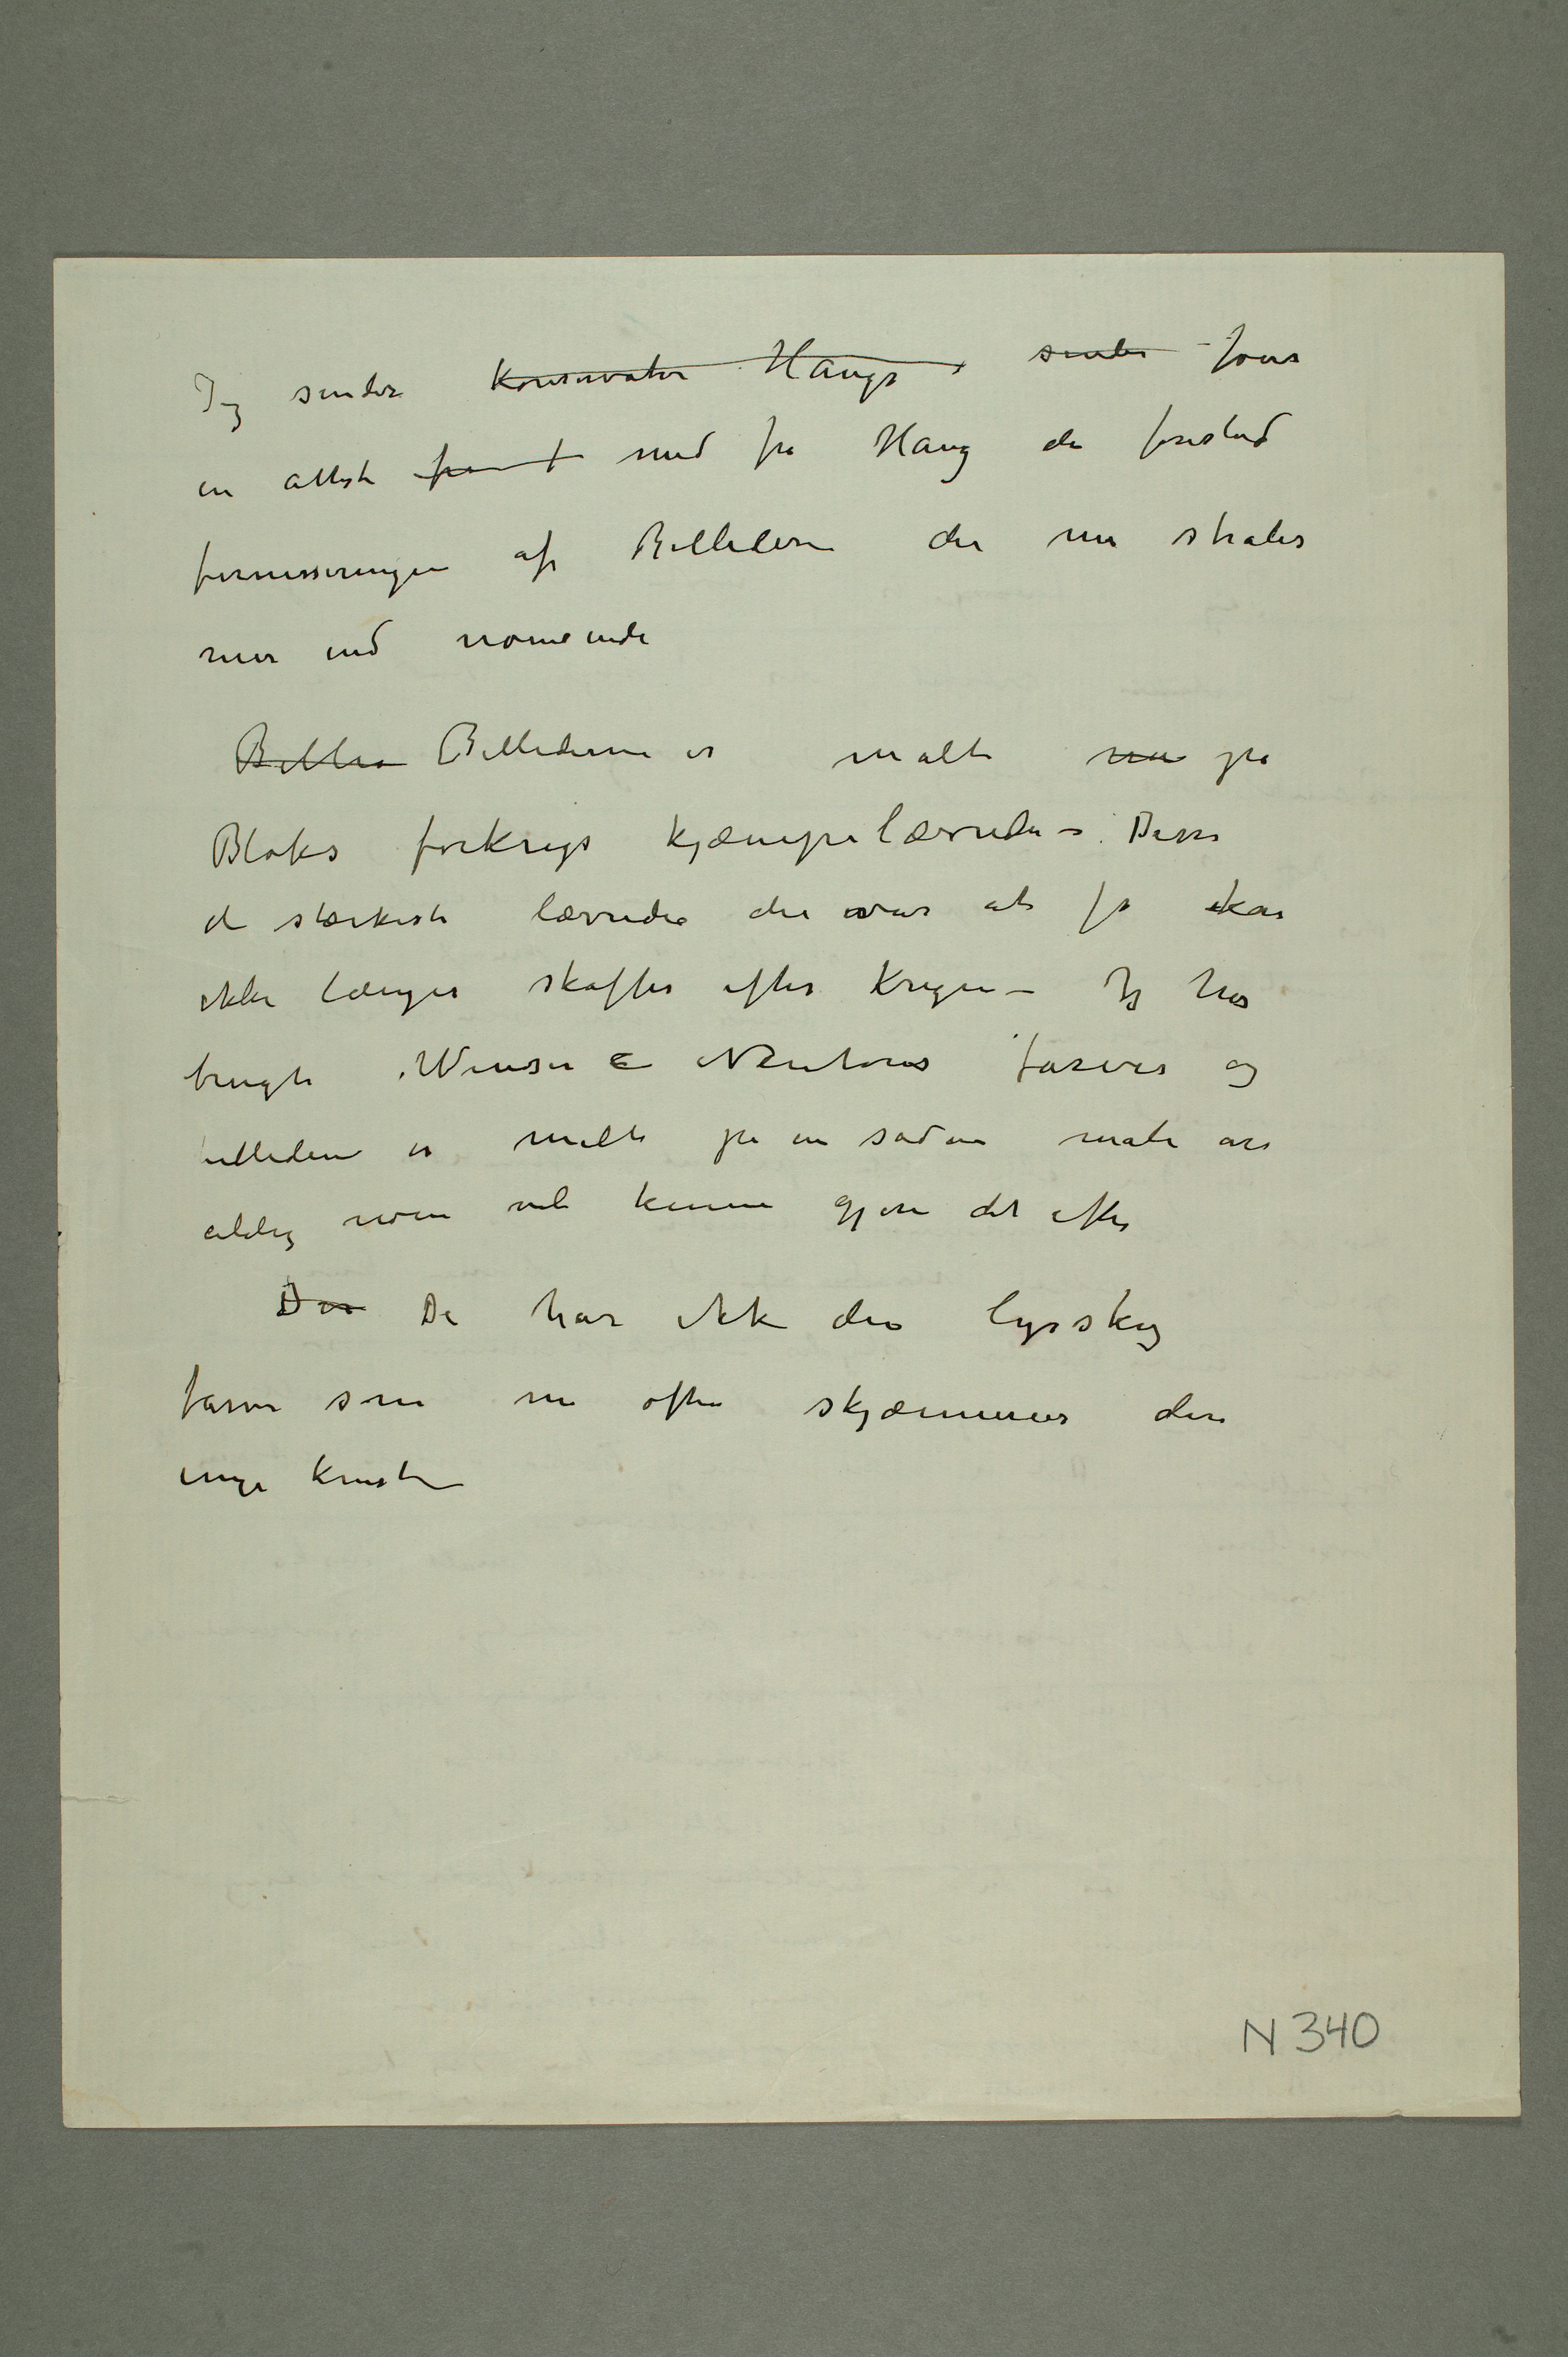 Jeg sender Konservator Haugs sender
en attest fra med fra Haug der forestod
fernisseringen af Billederne der nu stråler
mer end nomeinde
Billea Billederne er malt nu på
Bloks forkrigs kjæmpelærreder – Disse
de stærkeste lærreder der var at få kan
ikke længer skaffes efter Krigen – Jeg har
brugt Winsor & Newtons farver og
billederne er malt på en sådan måte as
aldrig noen vil kunne gjøre det efter
Der De har ikke den lyssky
farve som nu ofte skjæmmer den
unge kunst
N 340